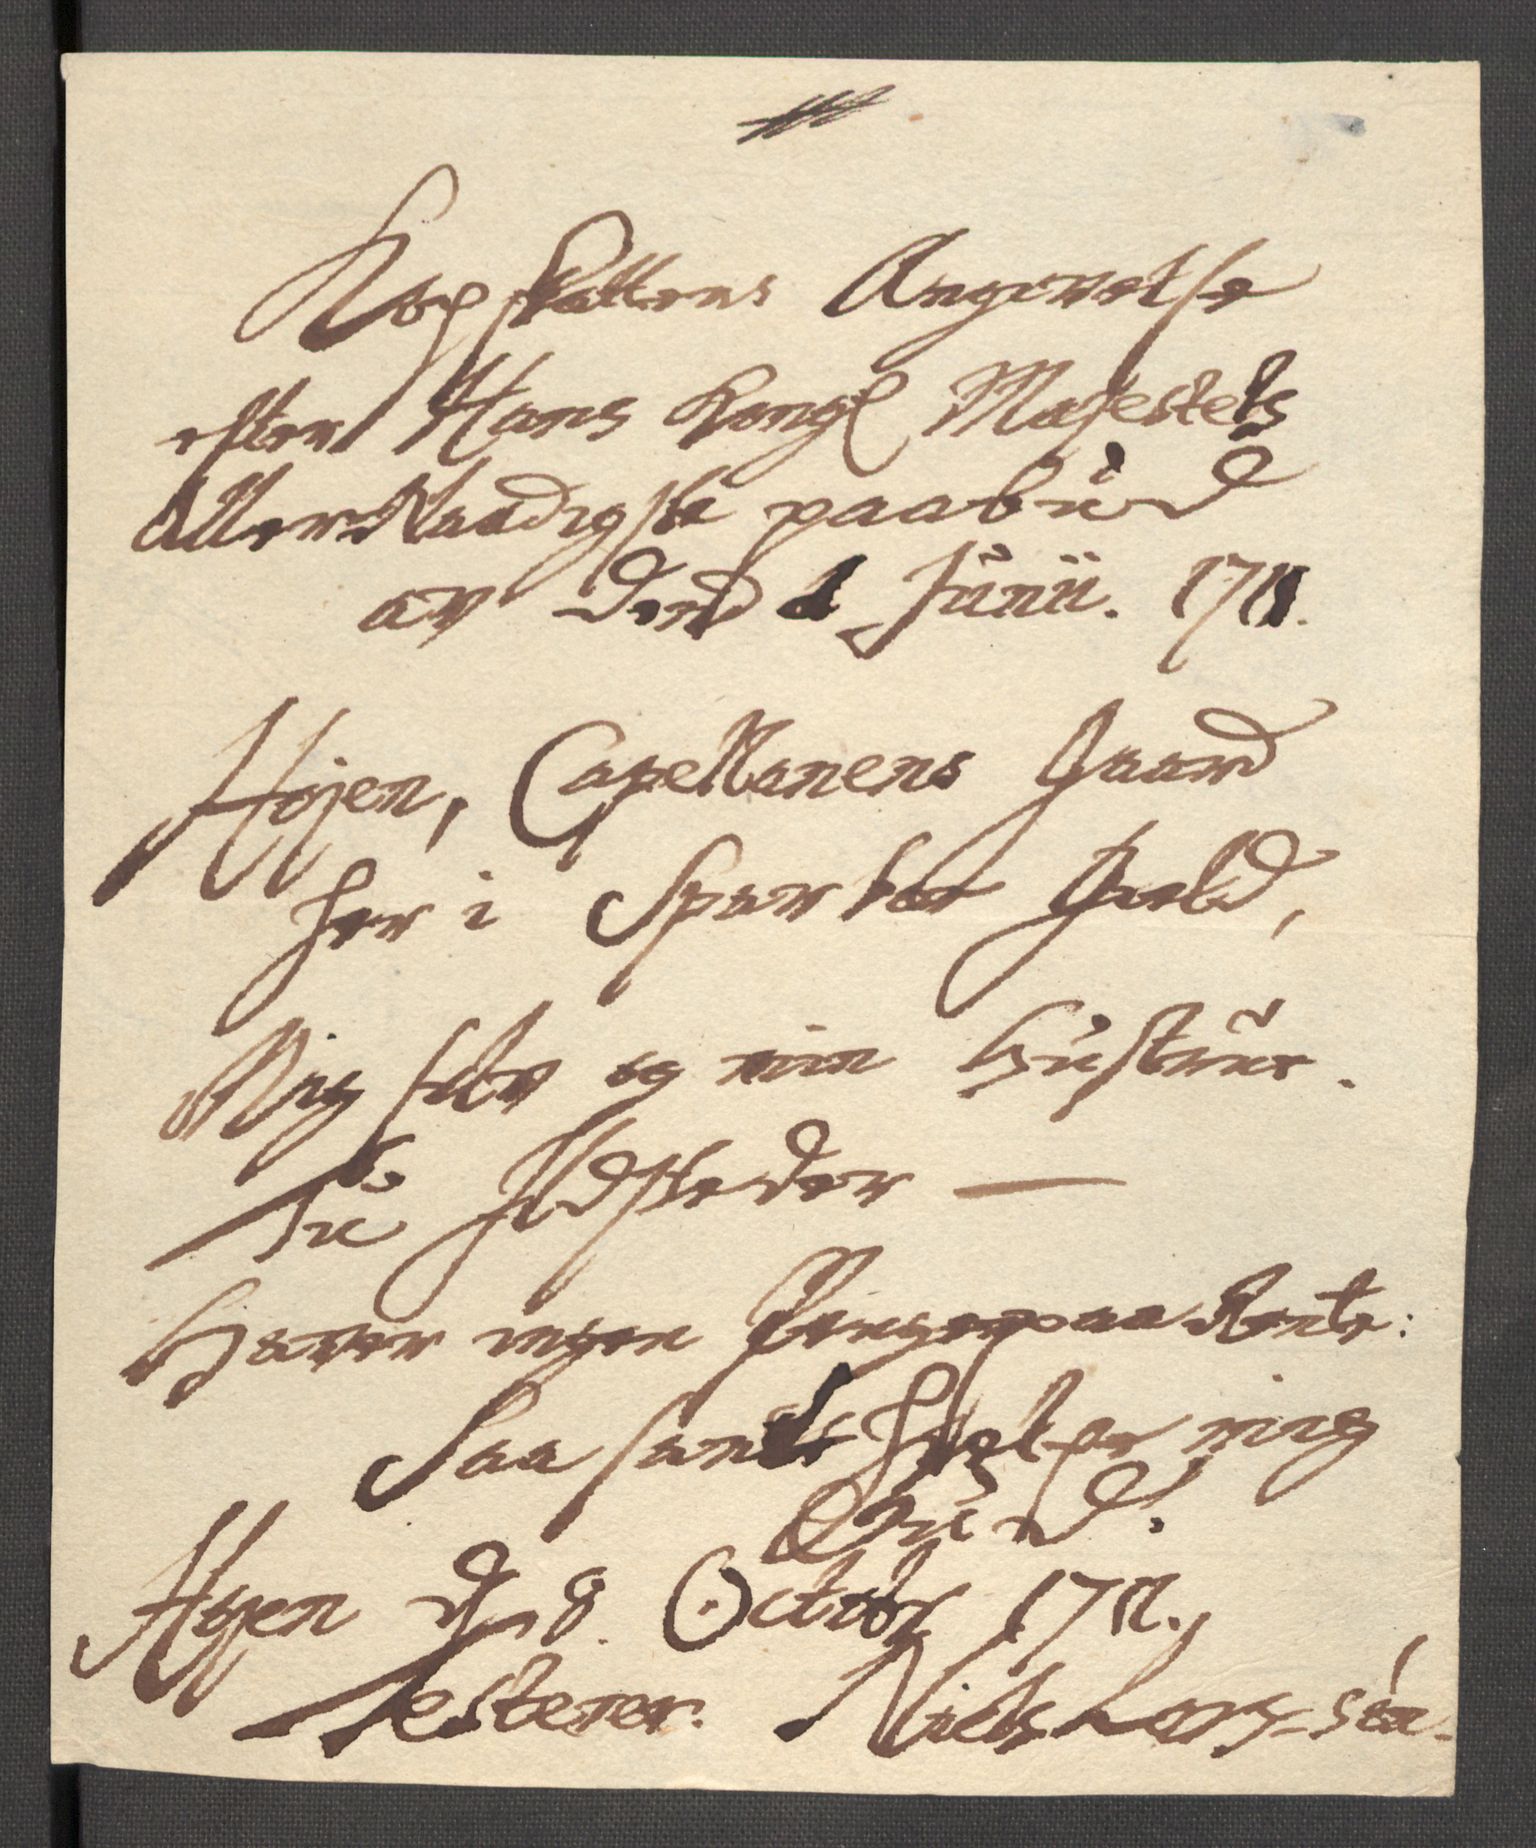 Kopskattens Angivelse
efter Hans Kongl Majestets
Aller Naadigste paabud
av Dend 1 Junii. 1711.
Højen, Capellanens Gaard
her i Sparboe Gield,
Mig selv og min Hustrue.
Tu Ildsteder —
Haver ingen Penge paa Rente:
Saa sandt hielpe mig
Gud!
Højen d. 8. Octobr 1711.,
Testerer. Niels Lars-sén.